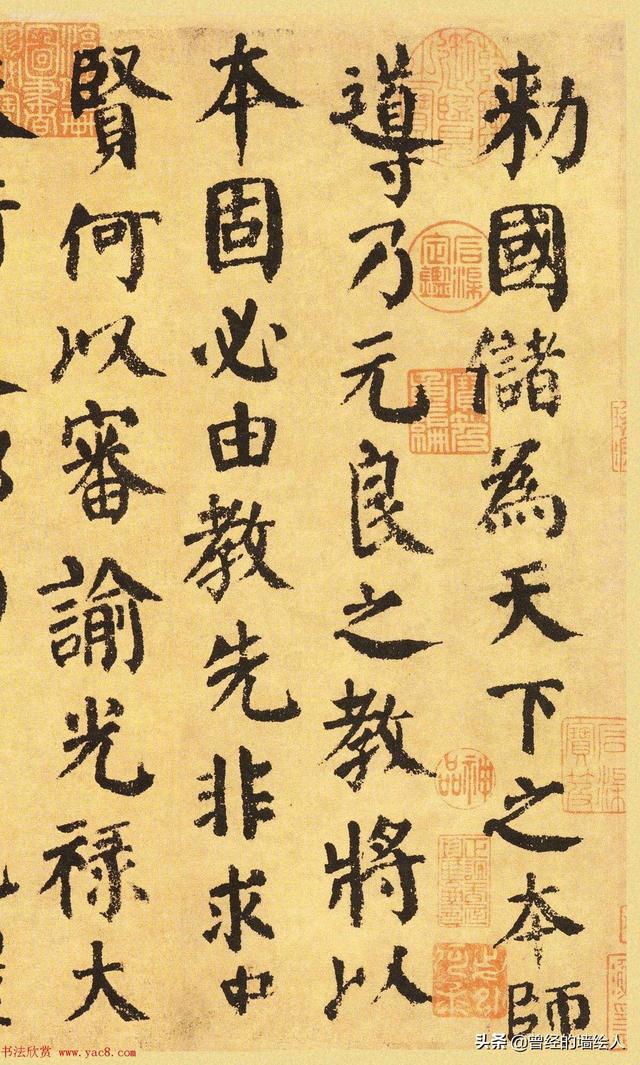 勑國儲為天下之本師
導乃元良之教將以
本固必由教先非求中
賢何以審諭光祿大
神品
书法欣赏 www.yac8.com
头条 @曾经的墙绘人